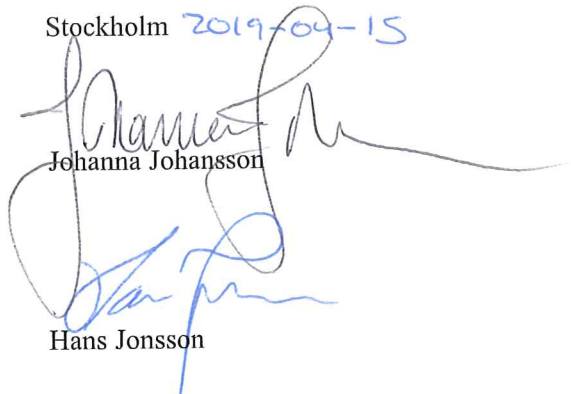 Stockholm 2019-04-15
Johanna Johansson
Hans Jonsson